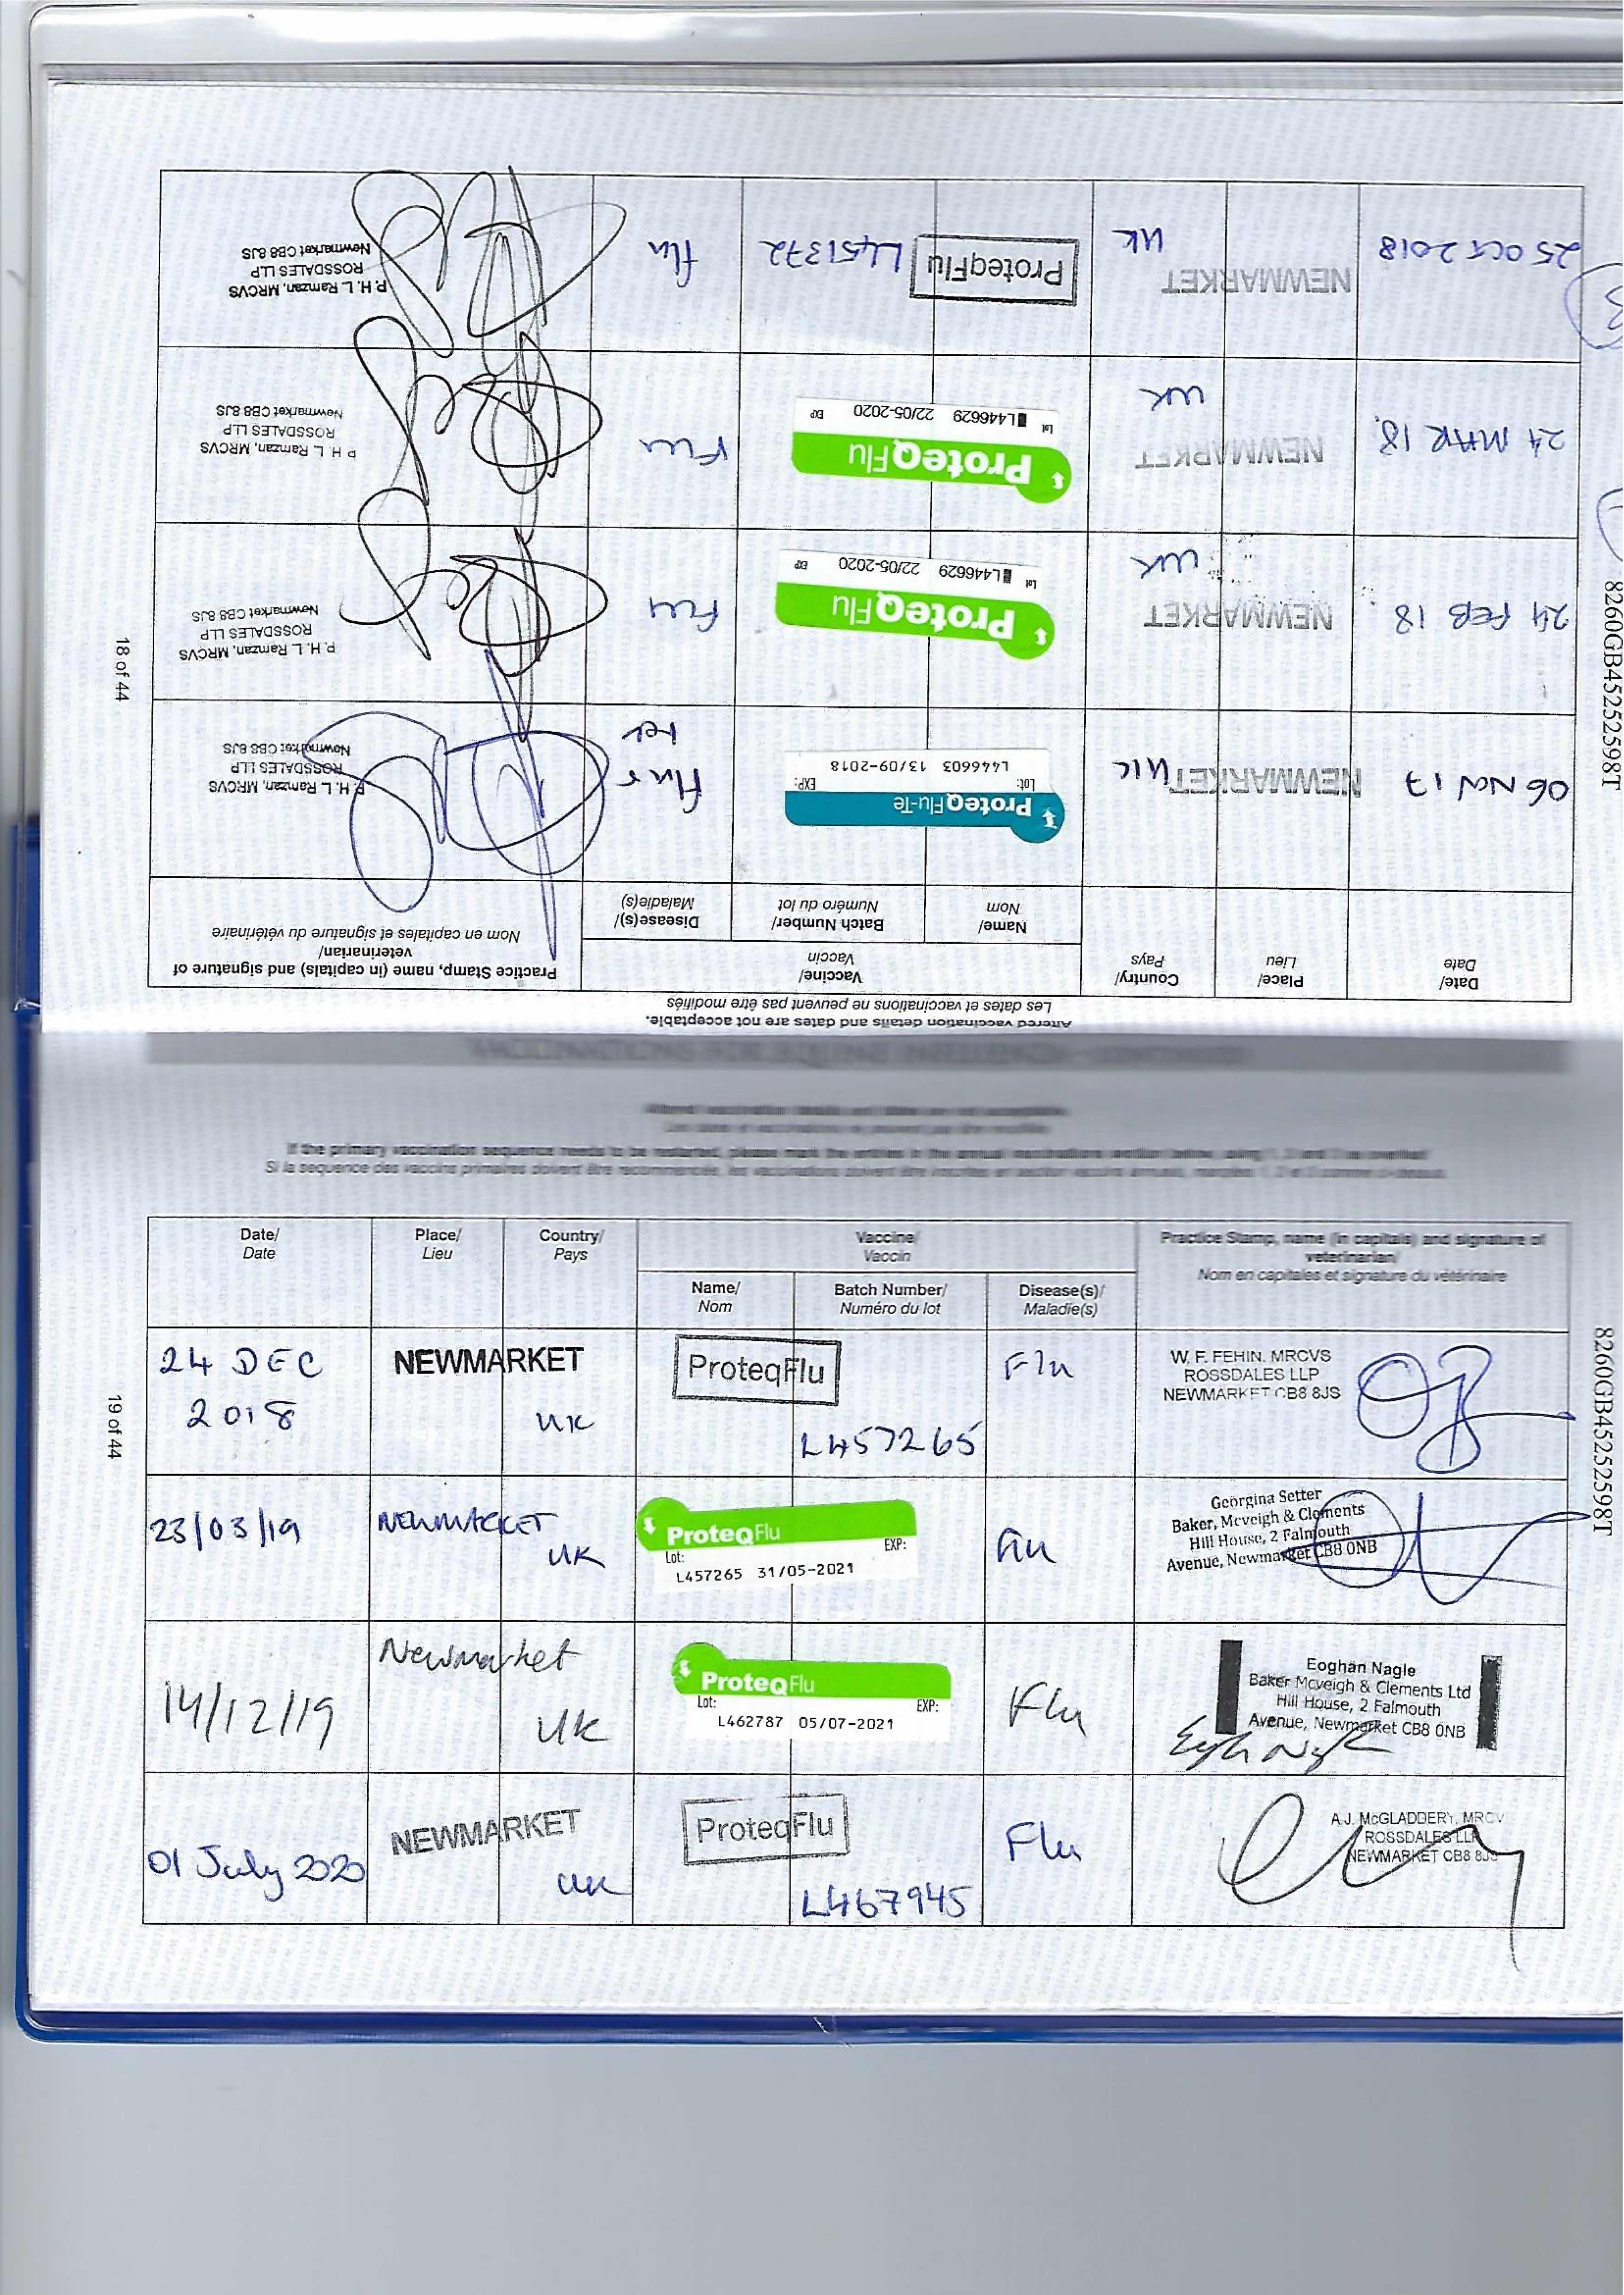 Altered vaccination details and dates are not acceptable.
Les dates et vaccinations ne peuvent pas être modifiés
Date/ Place/ Country/ Vaccine/ Practice Stamp, name (in capitals) and signature of
Date Lieu Pays Vaccin veterinarian/
Name/ Batch Number/ Disease(s)/ Nom en capitales et signature du vétérinaire
Nom Numéro du lot Maladie(s)
06 NOV 17 NEWMARKET UK
Proteq Flu-Te
Lot: EXP:
L446603 13/09-2018
Flu + tet
P. H. L. Ramzan, MRCVS
ROSSDALES LLP
Newmarket CB8 8JS
24 FEB 18. NEWMARKET UK
ProteqFlu
Lot L446629 22/05-2020 EXP
Flu
P. H. L. Ramzan, MRCVS
ROSSDALES LLP
Newmarket CB8 8JS
24 MAR 18. NEWMARKET UK
ProteqFlu
Lot L446629 22/05-2020 EXP
Flu
P H L Ramzan, MRCVS
ROSSDALES LLP
Newmarket CB8 8JS
25 OCT 2018 NEWMARKET UK
ProteqFlu L451372 flu
P. H. L. Ramzan, MRCVS
ROSSDALES LLP
Newmarket CB8 8JS
18 of 44
8260GB45252598T
VACCINATIONS FOR EQUINE INFLUENZA
Altered vaccination details and dates are not acceptable.
Les dates et vaccinations ne peuvent pas être modifiés
If the primary vaccination sequence needs to be restarted, please mark the entries in the annual vaccinations section below, using 1, 2 and 3 as overleaf
Si la sequence des vaccins primaires doivent être recommencée, les vaccinations doivent être
Date/ Place/ Country/ Vaccine/ Practice Stamp, name (in capitals) and signature of
Date Lieu Pays Vaccin veterinarian/
Name/ Batch Number/ Disease(s)/ Nom en capitales et signature du vétérinaire
Nom Numéro du lot Maladie(s)
24 DEC
2018
NEWMARKET
UK
ProteqFlu
L457265
Flu
W. F. FEHIN. MRCVS
ROSSDALES LLP
NEWMARKET CB8 8JS
23/03/19 NEWMARKET
UK
ProteqFlu
Lot: EXP:
L457265 31/05-2021
Flu
Georgina Setter
Baker, Mcveigh & Clements
Hill House, 2 Falmouth
Avenue, Newmarket CB8 0NB
14/12/19 Newmarket
UK
ProteqFlu
Lot: EXP:
L462787 05/07-2021
Flu
Eoghan Nagle
Baker Mcveigh & Clements Ltd
Hill House, 2 Falmouth
Avenue, Newmarket CB8 0NB
01 July 2020 NEWMARKET
UK
ProteqFlu
L467945
Flu
A.J. McGLADDERY, MRCV
ROSSDALES LLP
NEWMARKET CB8 8JS
19 of 44
8260GB45252598T